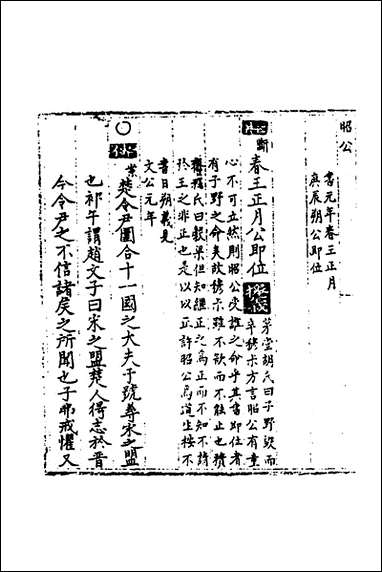 昭公
書元年春王正月
庚辰朔公即位
斷
春王正月公即位
茅堂胡氏曰子野毀而
卒穆叔方言昭公有童
心不可立然則昭公受誰之命乎其書即位者
有子野之命矣故穆叔雖不欲而不能止也積
齋程氏曰穀梁但知繼正之爲正而不知不請
於王之非正也是以以正許昭公焉道生按不
書日朔義見
文公元年
○
案楚令尹圍合十一國之大夫于虢尋宋之盟
也祁午謂趙文子曰宋之盟楚人得志於晉
今令尹之不信諸侯之所聞也子弗戒懼又